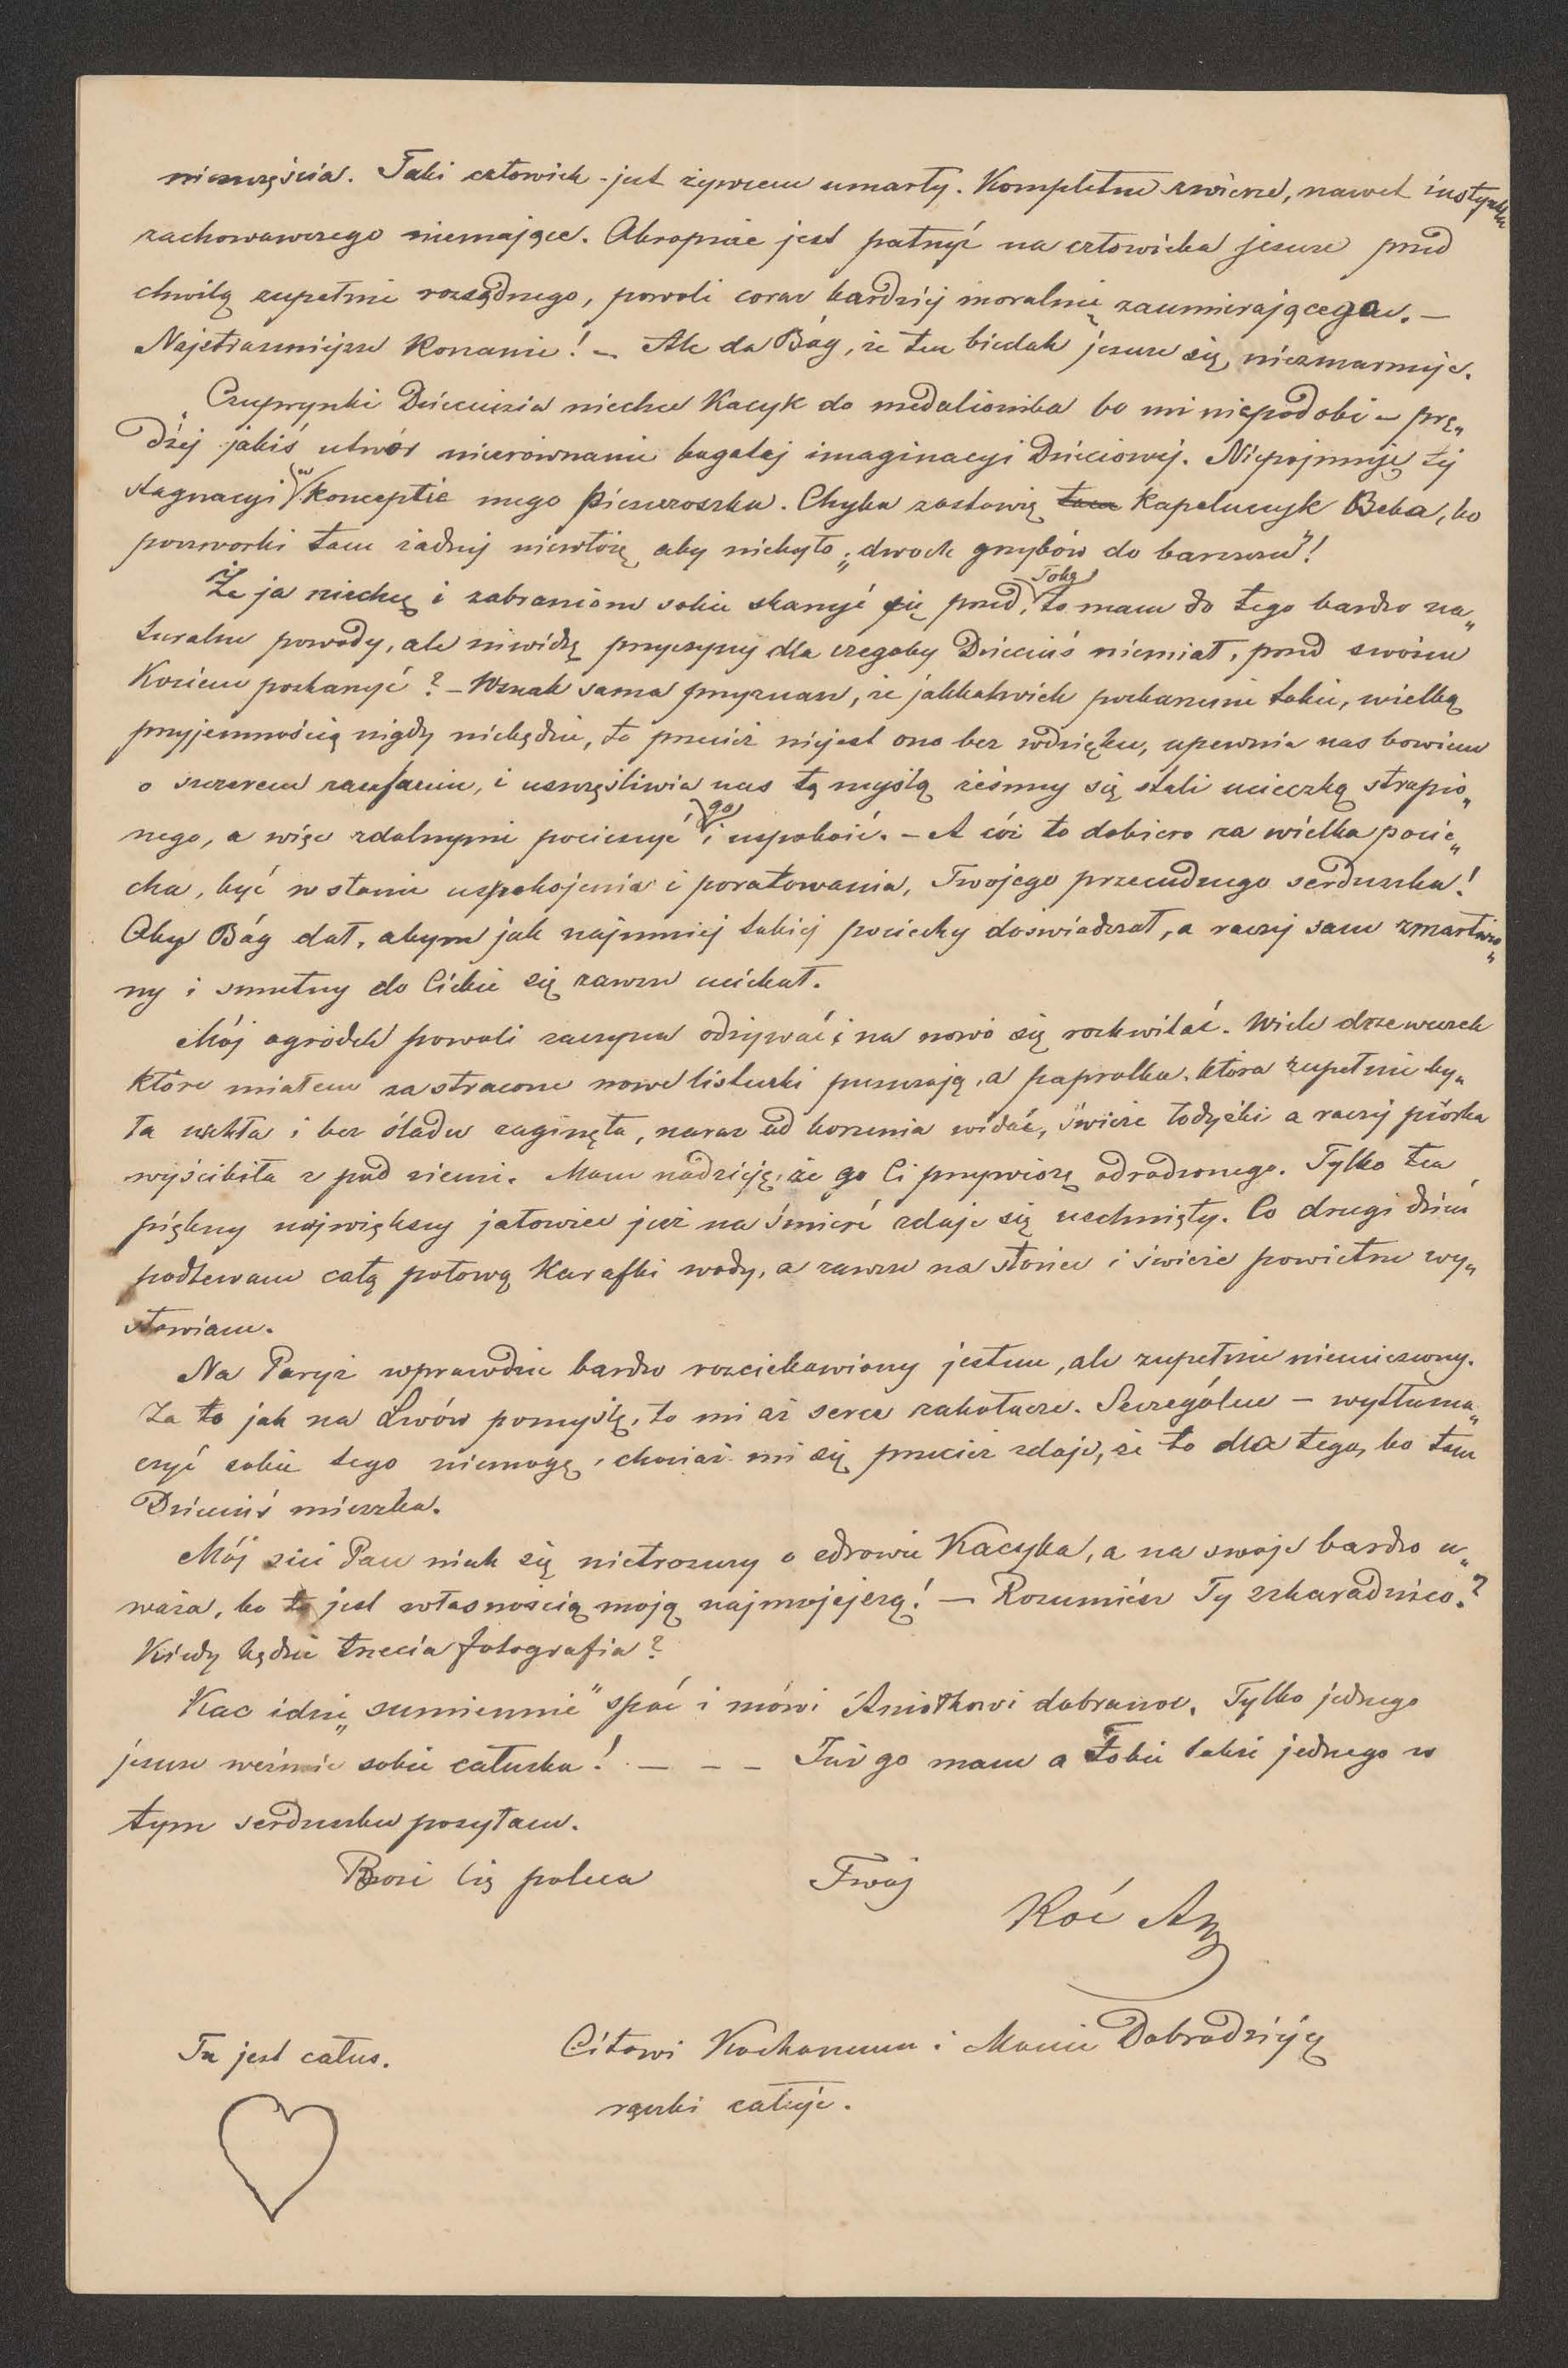 nieszczęścia. Taki człowiek jest żywcem umarły. Kompletne zwierzę, nawet instynktu
zachowawczego niemające. Okropnie jest patrzyć na człowieka jeszcze przed
chwilą zupełnie rozsądnego, powoli coraz bardziej moralnie zaumierającego. —
Najstraszniejsze konanie! — Ale da Bóg, że ten biedak jeszcze się niezmarnuje.
Czuprynki Dzieciuzia niechce Kacyk do medalionika bo mi niepodobi — prę„
dzej jakiś utwór nierównanie bogatej imaginacyi Dzieciowej. Niepojmuję tej
stagnacyi w koncepcie mego Pieszczoszka. Chyba zostawię kapeluszyk Beba, bo
poszworki tam żadnej niewłożę aby niebyło „dwóch grzybów do barszczu"!
Że ja niechcę i zabraniam sobie skarżyć się przed Tobą, to mam do tego bardzo na„
turalne powody, ale niewidzę przyczyny dla czegoby Dzieciuś niemiał, przed swoim
Kociem poskarżyć? — Wszak sama przyznasz, że jakkolwiek poskarżenie takie, wielką
przyjemnością nigdy niebędzie, to przecież niejest ono bez wdzięku, upewnia nas bowiem
o szczerem zaufaniu, i uszczęśliwia nas tą myślą żeśmy się stali ucieczką strapio„
nego, a więc zdolnymi pocieszyć go i uspokoić. — A cóż to dopiero za wielka pocie„
cha, być w stanie uspokojenia i poratowania, Twojego przecudnego serduszka!
Oby Bóg dał, abym jak najmniej takiej pociechy doświadczał, a raczej sam zmartwio„
ny i smutny do Ciebie się zawsze uciekał.
Mój ogródek powoli zaczyna odżywać i na nowo się rozkwitać. Wiele drzewczek
które miałem za stracone nowe listeczki puszczają, a paprotka, która zupełnie by„
ła uschła i bez śladu zaginęła, naraz od korzenia widać, świeże łodyżki a raczej piórka
wyścibiła z pod ziemi. Mam nadzieję, że go Ci przywiozę odrodzonego. Tylko ten
piękny największy jałowiec już na śmierć zdaje się uschnięty. Co drugi dzień
podlewam całą połową karafki wody, a zawsze na słońce i świeże powietrze wy„
stawiam.
Na Paryż wprawdzie bardzo rozciekawiony jestem, ale zupełnie nieucieszony.
Za to jak na Lwów pomyślę, to mi aż serce zakołacze. Szczególne — wytłuma„
czyć sobie tego niemogę, chociaż mi się przecież zdaje, że to dla tego, bo tam
Dzieciuś mieszka.
Mój zieć Pan niech się nietroszczy o zdrowie Kacyka, a na swoje bardzo u„
waża, bo to jest własnością moją najmojejszą! — Rozumiesz Ty szkaradnico?
Kiedy będzie trzecia fotografia?
Kac idzie „sumiennie" spać i mówi Aniołkowi dobranoc. Tylko jednego
jeszcze weźmie sobie całuska! — — — Już go mam a Tobie także jednego w
tym serduszku posyłam.
Bozi Cię poleca Twój
Koć Az
Tu jest całus.
Citowi Kochanemu i Mamie Dobrodziejcę
rączki całuję.